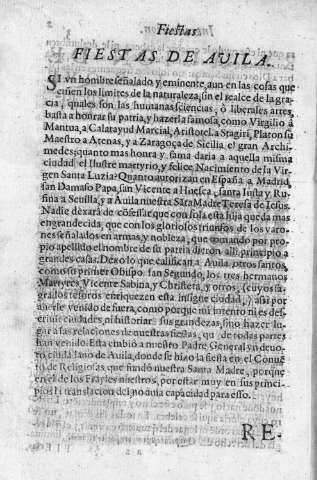 Fiestas
FIESTAS DE AUILA.
SI vn hombre señalado y eminente, aun en las cosas que
ciñen los limites de la naturaleza, sin el realce de la gra-
cia, quales son las humanas sciencias, ò liberales artes,
basta a honrar su patria, y hazerla famosa, como Virgilio à
Mantua, a Calatayud Marcial, Aristotel. a Stagiri, Platon su
Maestro a Atenas, y a Zaragoça de Sicilia el gran Archi-
medes; quanto mas honra y fama daria a aquella misma
ciudad el Ilustre martyrio, y felice Nacimiento de la Vir-
gen Santa Luzia? Quanto autorizan en España a Madrid,
san Damaso Papa, san Vicente a Huesca, santa Iusta y Ru-
fina a Seuilla, y a Auila nuestra Sãta Madre Teresa de Iesus.
Nadie dexarà de cõfessar que con sola esta hija queda mas
engrandecida, que con los gloriosos triunfos de los varo-
nes señalados en armas y nobleza, que tomando por pro-
pio apellido el nombre de su patria dieron alli principio a
grandes casas. Dexo lo que califican a Auila otros santos,
como su primer Obispo san Segundo, los tres hermanos
Martyres, Vicente Sabina, y Christeta, y otros, (cuyos sa-
grados tesoros enriquezen esta insigne ciudad,) assi por
auerle venido de fuera, como porque mi intento no es des-
criuir ciudades, ni historiar sus grandezas, sino hazer lu-
gar a las relaciones de nuestras fiestas, que de todas partes
han venido. Esta embiò a nuestro Padre General vn deuo-
to ciudadano de Auila, donde se hizo la fiesta en el Conuẽ
to de Religiosas que fundò nuestra Santa Madre, porque
en el de los Frayles nuestros, por estar muy en sus princi-
pios la translacion del no auia capacidad para esso.
RE-